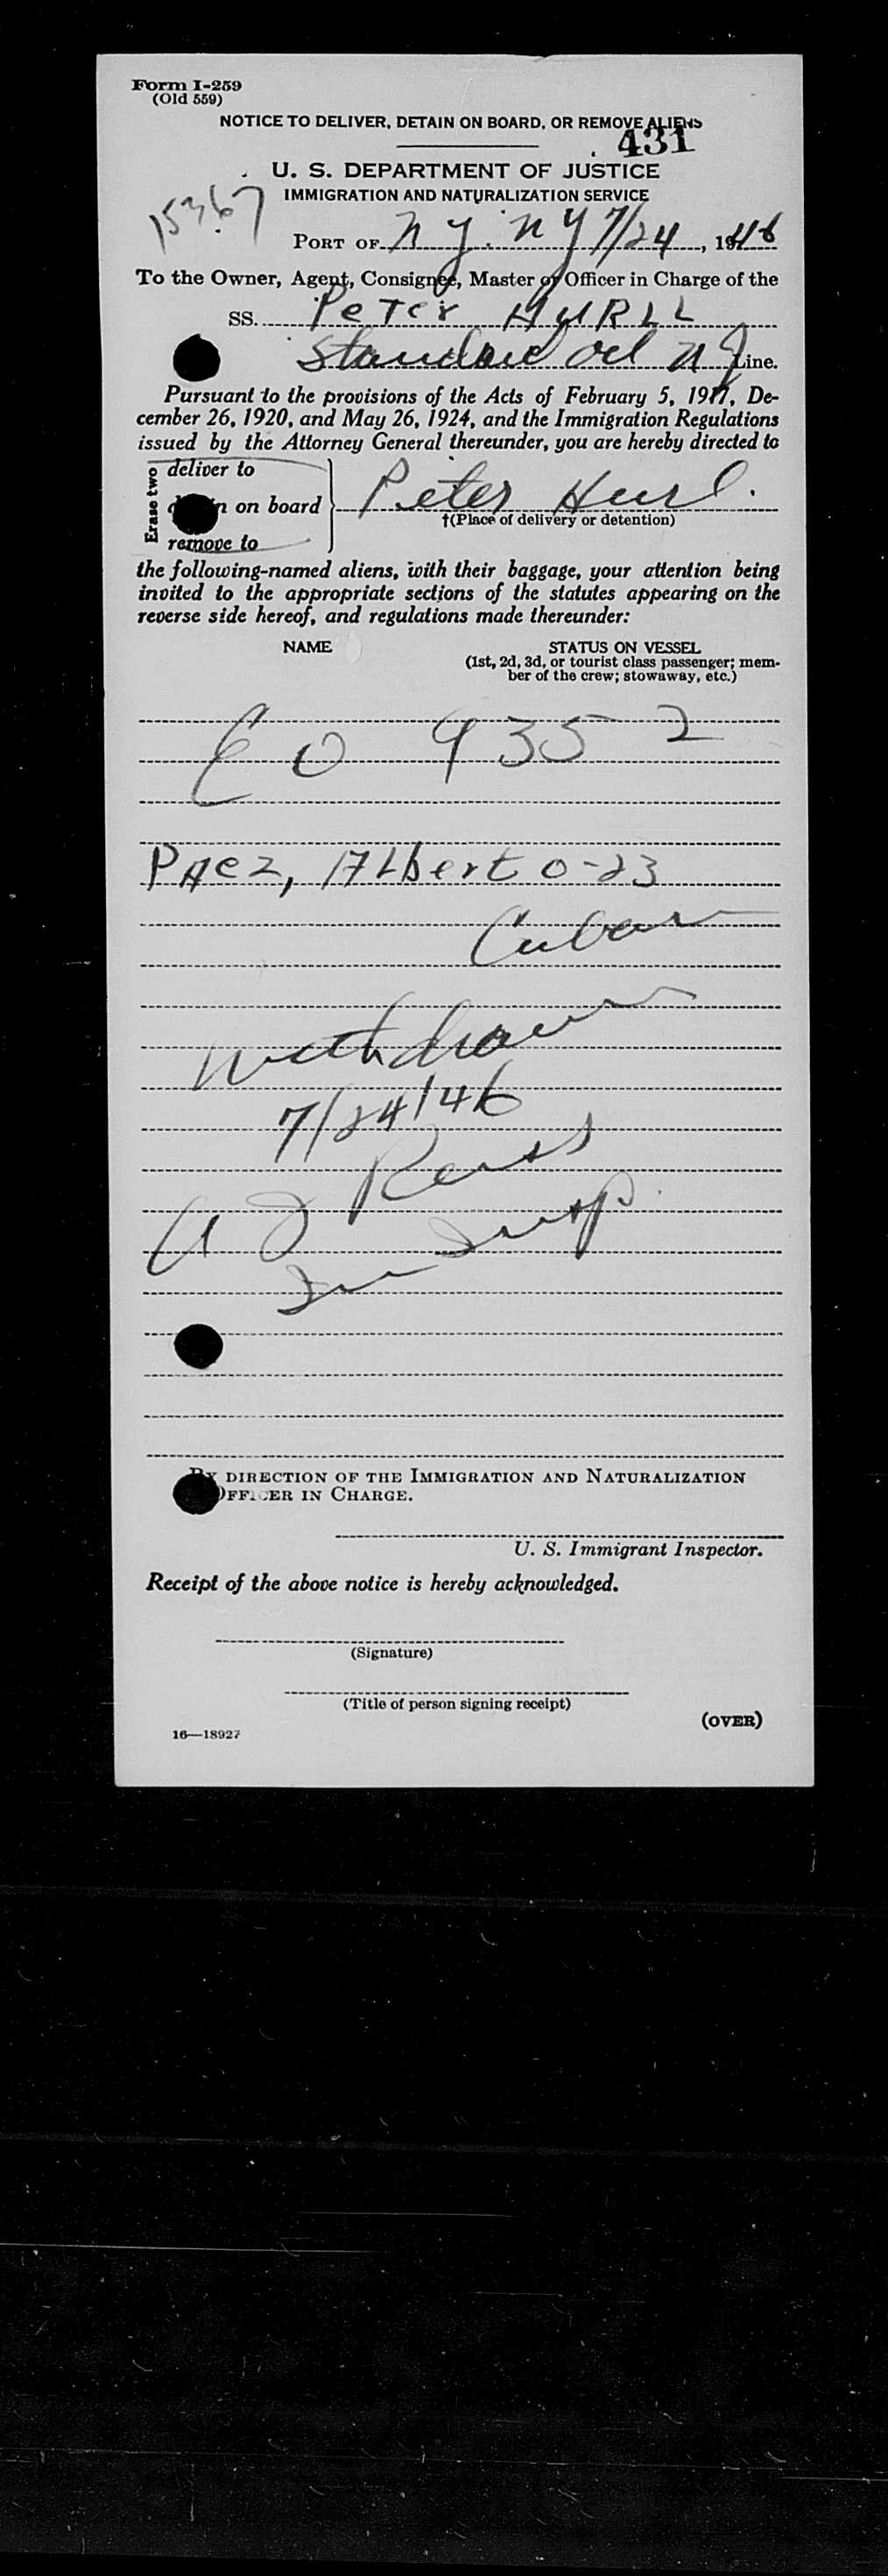 Form I-259
(Old 559)
NOTICE TO DELIVER, DETAIN ON BOARD, OR REMOVE ALIENS
431
U. S. DEPARTMENT OF JUSTICE
IMMIGRATION AND NATURALIZATION SERVICE
15367
PORT OF N Y. N Y 7/24, 1946
To the Owner, Agent, Consignee, Master or Officer in Charge of the
SS. Peter HURLL
Standard oil N J Line.
Pursuant to the provisions of the Acts of February 5, 1917, De-
cember 26, 1920, and May 26, 1924, and the Immigration Regulations
issued by the Attorney General thereunder, you are hereby directed to
Erase two
deliver to
on board Peter Hurl.
†(Place of delivery or detention)
remove to
the following-named aliens, with their baggage, your attention being
invited to the appropriate sections of the statutes appearing on the
reverse side hereof, and regulations made thereunder:
NAME STATUS ON VESSEL
(1st, 2d, 3d, or tourist class passenger; mem-
ber of the crew; stowaway, etc.)
EO 9352
PAez, ALberto-23
Cuban
Withdrawn
7/24/46
A J Reiss
Insp
BY DIRECTION OF THE IMMIGRATION AND NATURALIZATION
OFFICER IN CHARGE.
U. S. Immigrant Inspector.
Receipt of the above notice is hereby acknowledged.
(Signature)
(Title of person signing receipt)
(OVER)
16—18927